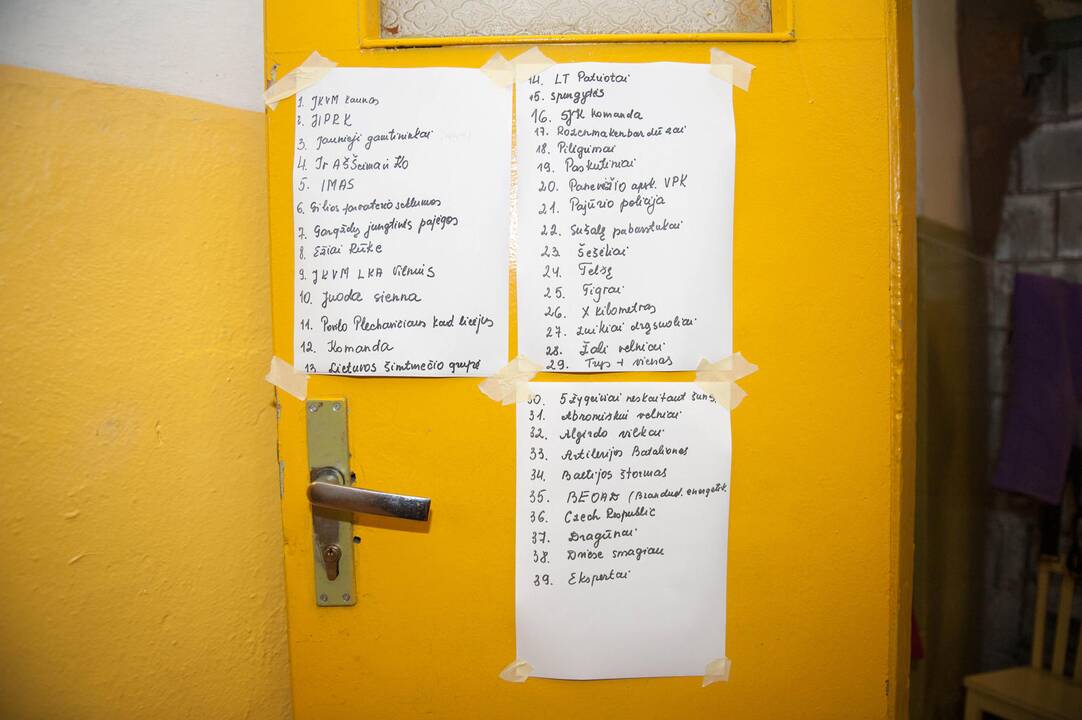 1. JKVM Kaunas
2. JIPRK
3. Jaunieji gamtininkai
4. Ir AŠ Šeima ir Ko
5. IMAS
6. Gilios
7. Gargždų jungtinės pajėgos
8. Ežiai Rūke
9. JKVM LKA Vilnius
10. Juoda sienna
11. Povilo Plechavičiaus kad licėjus
12. Komanda
13. Lietuvos šimtmečio grupė
14. LT Patriotai
15. Spurgytės
16. SJK komanda
17. Rozenmakenbardužai
18. Piligrimai
19. Paskutiniai
20. Panevėžio apsk. VPK
21. Pajūrio policija
22. Sušalę pabarstukai
23. Šešėliai
24. Telšę
25. Tigrai
26. X kilometras
27. Zuikiai drąsuoliai
28. Žali velniai
29. Trys + vienas
30. 5 žygeiviai neskaitant šuns.
31. Abromiškių velniai
32. Algirdo vilkai
33. Artilerijos Batalionas
34. Baltijos štormas
35. BEOAD (Branduol. energetik.
36. Czech Republic
37. Dragūnai
38. Dviese smagiau
39. Ekspertai